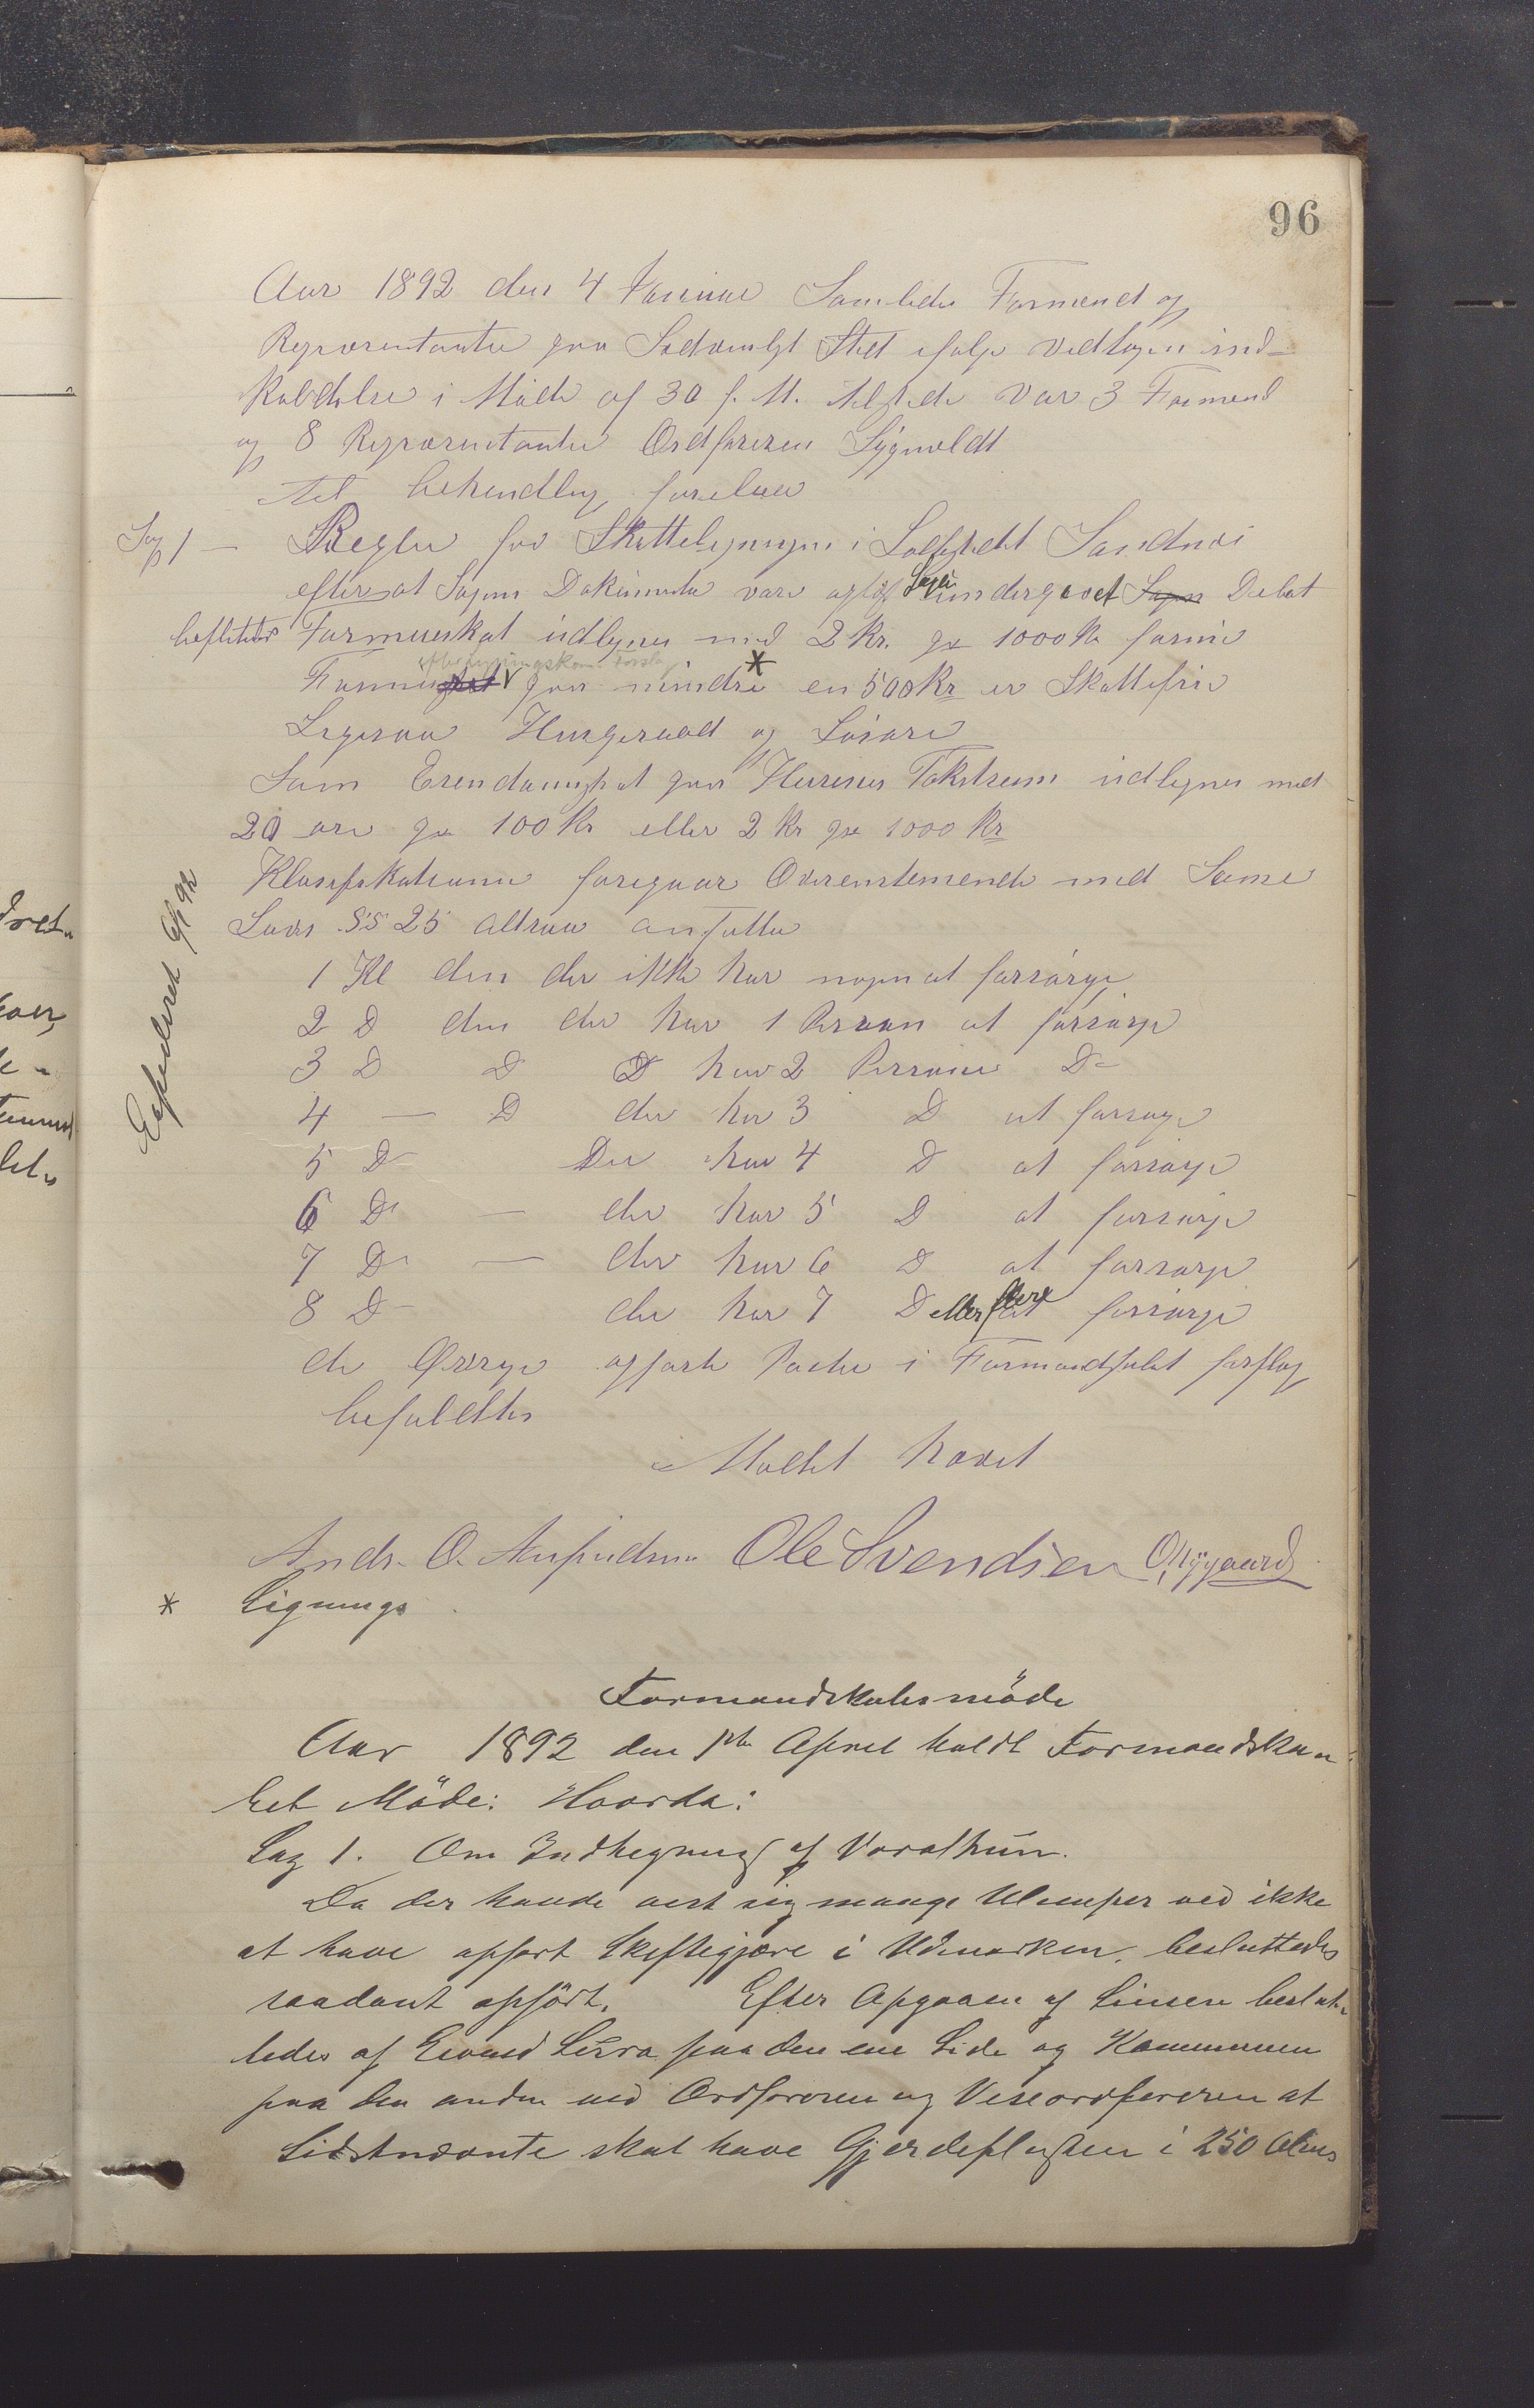 96
Aar 1892 den 4 Januar Samledes Formænd og
Repræsentanter paa Sædvanligt Sted ifølge vedtagen ind-
kaldelse i Møde af 30 f. M. tilstede var 3 Formænd
og 8 Repræsentanter Ordføreren Sygmeldt
til behandling forelaa
Sag 1 — Regler for Skatteligningen i Ladestedet Sandnæs
efter at Sagens Dokumenter vare oplæst Sagen undergaaet Sagen Debat
besluttedes Formueskat udlignes med 2 Kr. pr 1000 Kr formue
Formue paa mindre * en 500 Kr er Skattefri
Ligesaa Husgeraad og Løsøre
Som Eiendomsskat paa Husenes Takstsum udlignes med
20 øre pr 100 Kr eller 2 Kr pr 1000 Kr
Klasifikationen foregaar Overenstemende med Samme
Lovs §§ 25 altsaa ansættes
1 Kl den der ikke har nogen at forsørge
2 D den der har 1 Person at forsørge
3 D D D har 2 Personer D-
4 — D der har 3 D at forsørge
5 D- Der har 4 D at forsørge
6 D- — der har 5 D at forsørge
7 D- — der har 6 D at forsørge
8 D- der har 7 D eller flere at forsørge
de Øvrige opførte Poster i Formandskabet forslag
befuldtes
Mødet hævet
Expederet 6/1 92
Ands. O. Ole Svendsen O Nygaard
* Lignings
Formandskabsmöde
Aar 1892 den 1ste April holdt Formandskan
bet Möde: Hvorda:
Sag 1. Om Indhegning af Vorathun.
Da der havde vist sig mange Ulemper ved ikke
at have opført Skiftegjære i Udmarken, besluttedes
saadant opført. Efter Opgaaen af Linien beslut-
tedes af Eivind Lura paa den ene Side og Kommunen
paa den anden ved Ordføreren og Viseordføreren at
Sidstnævnte skal have Gjerdepligten i 250 Alens